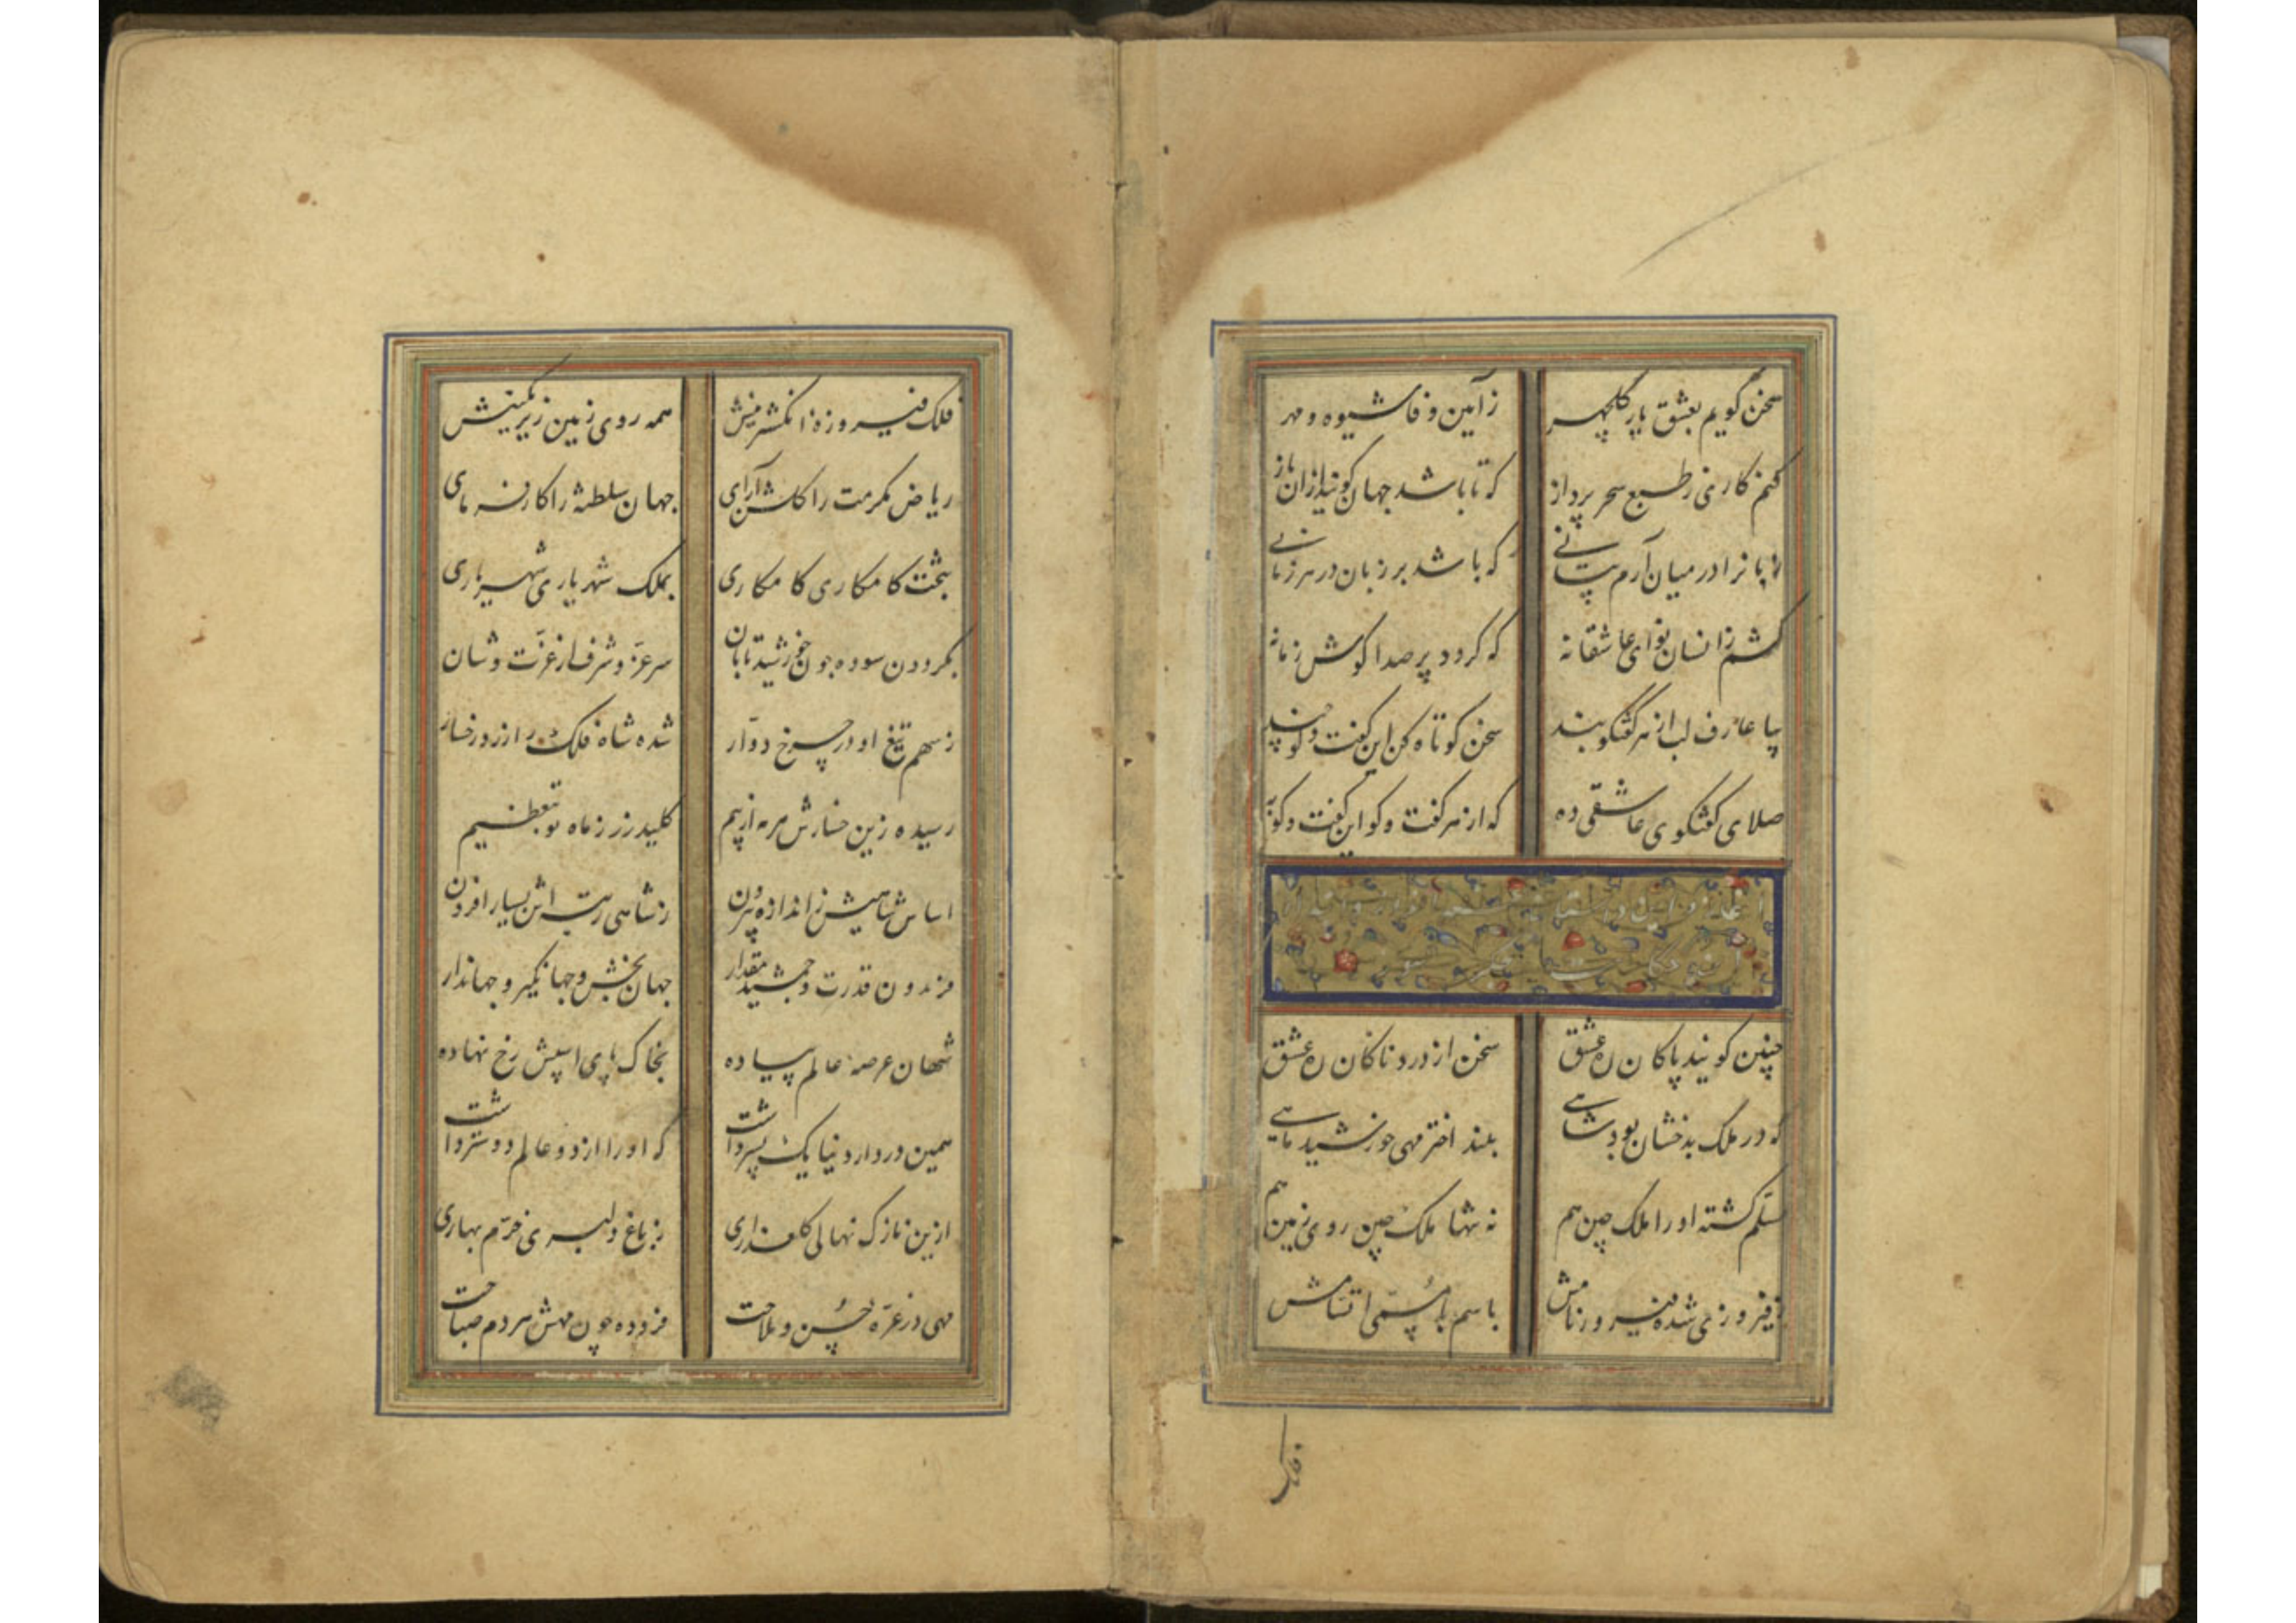 سخن گویم بعشق یار گلچهر زآیین وفا شیوه و مهر
کنم کاری زطبع سحر پرداز که تا باشد جهان کویند ازان باز
را در میان آرم بیانی که باشد بر زبان در هر زمانی
کشم زانسان نوای عاشقانه که کردد پر صدا کوش زمانه
بیا عارف لب از هر گفتگو بند سخن کوتاه کن این کفت و کو چند
صلای کفتکوی عاشقی ده که از هر کفت و کو این کفت و کو به
چنین کویند پاکان ره عشق سخن از دردناکان ره عشق
که در ملک بدخشان بود شاهی بلند اختر مهی خورشید ماهی
مسلّم کشته او را ملک چین هم نه تنها ملک چین روی زمین هم
زفیروزی شده فیروز نامش باسم با مسمی
فلک
فلک فیروزهٔ انکشترینش همه روی زمین زیر نکینش
ریاض مکرمت را کلشن آرای جهان سلطنه را کارفرمای
بتخت کامکاری کامکاری بملک شهریاری شهریاری
بکردون سوده چون خورشید تابان سر عزّ و شرف از عزّت و شان
زسهم تیغ او در چرخ دوّار شده شاه فلک را زرد رخسار
رسیده زین از بیم کلید زر زماه نو بتعظیم
اساس شاهیش زاندازه بیرون زشاهی رتبه اش بسیار افزون
فریدون قدرت و جمشید مقدار جهان بخش و جهانگیر و جهاندار
شهان عرصهٔ عالم پیاده بخاک پای اسپش رخ نهاده
همین در دار دنیا یک پسر داشت که او را از دو عالم دوستر داشت
ازین نازک نهالی کلعذاری زباغ دلبری خرّم بهاری
مهی در غرّهٔ حُسن و ملاحت فزوده چون مهش هر دم صباحت